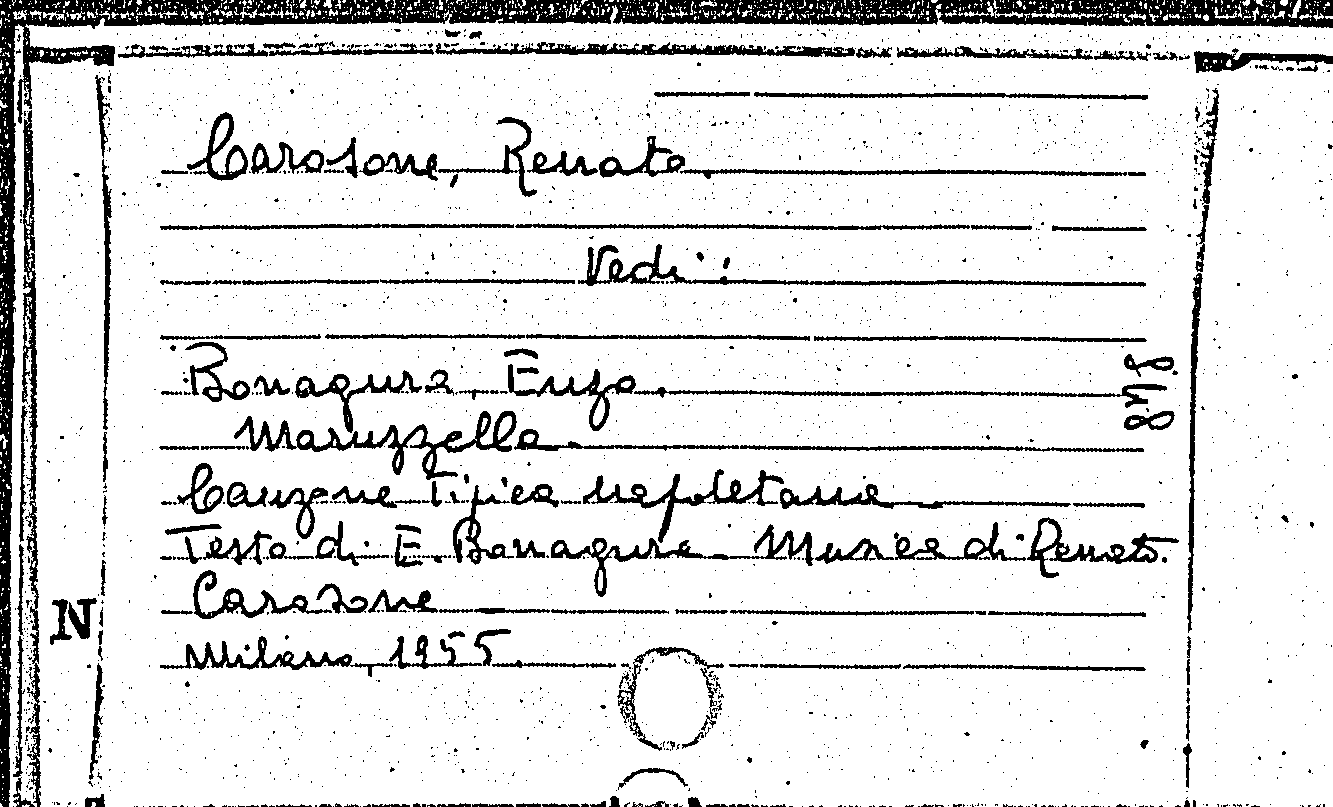 Carosone, Renato.
Vedi:
Bonagura, Enzo.
Maruzzella.
Canzone Tipica napoletana
Testo di E. Bonagura - Musica di Renato
Carosone
N
Milano, 1955.